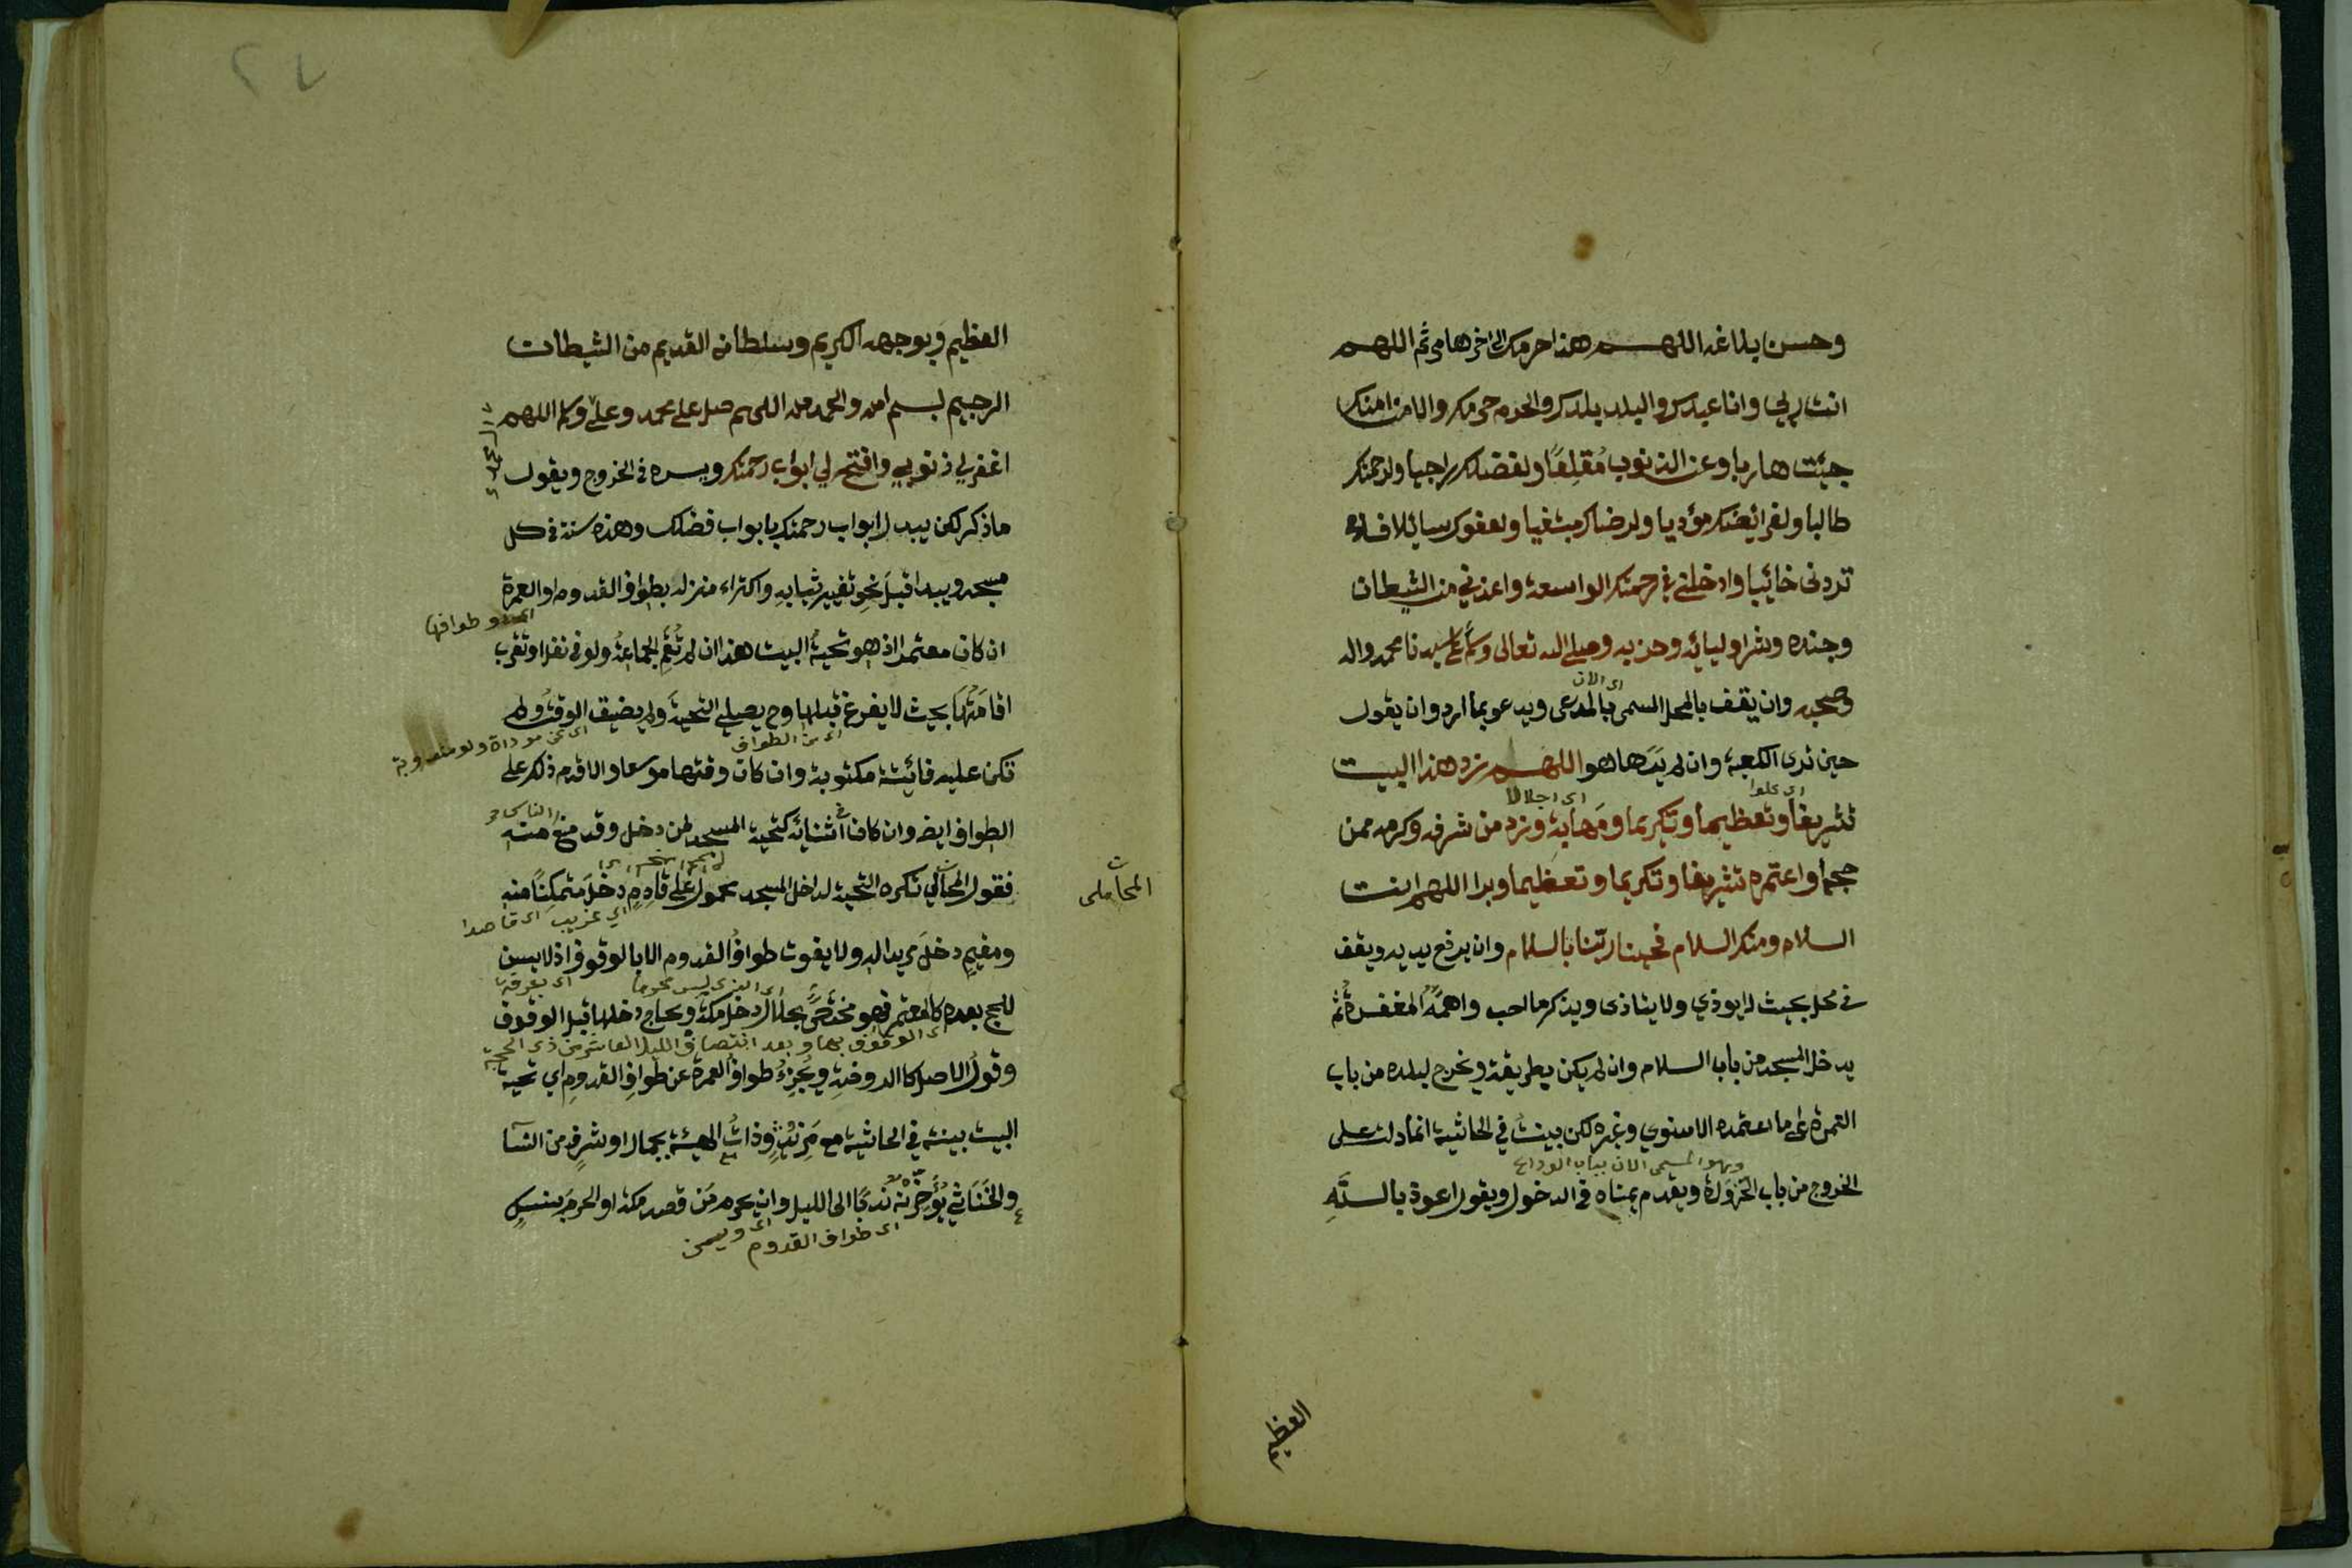 وحسن بلاغه اللهم هذا حرمك الى اخرها مر ثم اللهم
انت ربي وانا عبدك والبلد بلدك والحرم حرمك والامن امنك
جيئت هاربا وعن الذنوب مُقلِعًا ولفضلك راجيا ولرحمتك
طالبا ولفرائضك مؤديا ولرضاك مبتغيا ولعفوك سائلا فلا
تردني خائبا وادخلني في رحمتك الواسعة واعذني من الشيطان
وجنده وشر اوليائه وحزبه وصلى الله تعالى وسلم على سيدنا محمد واله
وصحبه وان يقف بالمحل المسمى بالمدعى ويدعو بما اراد وان يقول
اى الان
حين ترى الكعبة وان لم يَرَها هو اللهم زد هذا البيت
اى علوا
اى اجلالا
تشريفا وتعظيما وتكريما ومَهابة وزد من شرفه وكرمه ممن
حجه او اعتمره تشريفا وتكريما وتعظيما وبرا اللهم انت
السلام ومنك السلام فحينا ربّنا بالسلام وان يرفع يديه ويقف
في محل بحيث لا يوذي ولا يتاذى ويذكر ما احب واهمَّه المغفرة ثم
يدخل المسجد من باب السلام وان لم يكن بطريقه ويخرج لبلده من باب
العمرة على ما اعتمده الاسنوي وغيره لكن بينت في الحاشية انما دلت على
وهو المسمى الان بباب الوداع
الخروج من باب الحَزوَرة ويقدم يمناه في الدخول ويقول اعوذ بالله
العظيم
٢٧
العظيم وبوجهه الكريم وسلطانه القديم من الشيطان
الرجيم بسم الله والحمد لله اللهم صل على محمد وعلى وسلم اللهم
اغفر لي ذنوبي وافتح لي ابواب رحمتك ويسره في الخروج ويقول
ماذكر لكن يبدل ابواب رحمتك بابواب فضلك وهذه سنة في كل
مسجد ويبدا قبل نحو تغيير ثيابه واكتراء منزله بطواف القدوم او العمرة
طوافها
ان كان معتمرا اذ هو تحيةُ البيت هذا ان لم تُقم الجماعةُ ولو في نفل او تقرب
اقامَتُها بحيث لا يفرغ قبلها وح يصلي التحيةَ ولم يضيق الوقتُ ولم
اى من الطواف
اى عن موداة ولو مندوبة
تكن عليه فائتة مكتوبة وان كان وقتها موسعا والا قدم ذلك على
الطواف ايض وان كان في اثنائه كتحية المسجد لمن دخل وقد منع الناس منه
فقول المحاملي تكره التحية لداخل المسجد محمول على قادِمٍ دخلَ متمكنًا منه
المحاملى
اي غريب
اى قاصدا
ومقيمٍ دخلَ مريدا له ولا يفوت طوافُ القدوم الا بالوقوف اذ لا يسن
اى بعرفة
اى الذى ليس محرما
للحج بعده كالمعتمر فهو مختصٌّ بحلال دخل مكة وبحاج دخلها قبل الوقوف
اى الوقوف بها وبعد انتصاف الليلة العاشر من ذى الحجة
وقول الاصل كالروضةِ ويُجزِءُ طوافُ العمرة عن طوافِ القدومِ اي تحية
البيت بينته في الحاشية مع مَزيدٍ وذاتُ الهيئة بجمال او شرفٍ من النسا
والخَنَاثي يُؤَخِّرْنَه ندبًا الى الليل وان يحرم مَن قصد مكة او الحرم بنسكٍ
اى طواف القدوم
اى ويسن